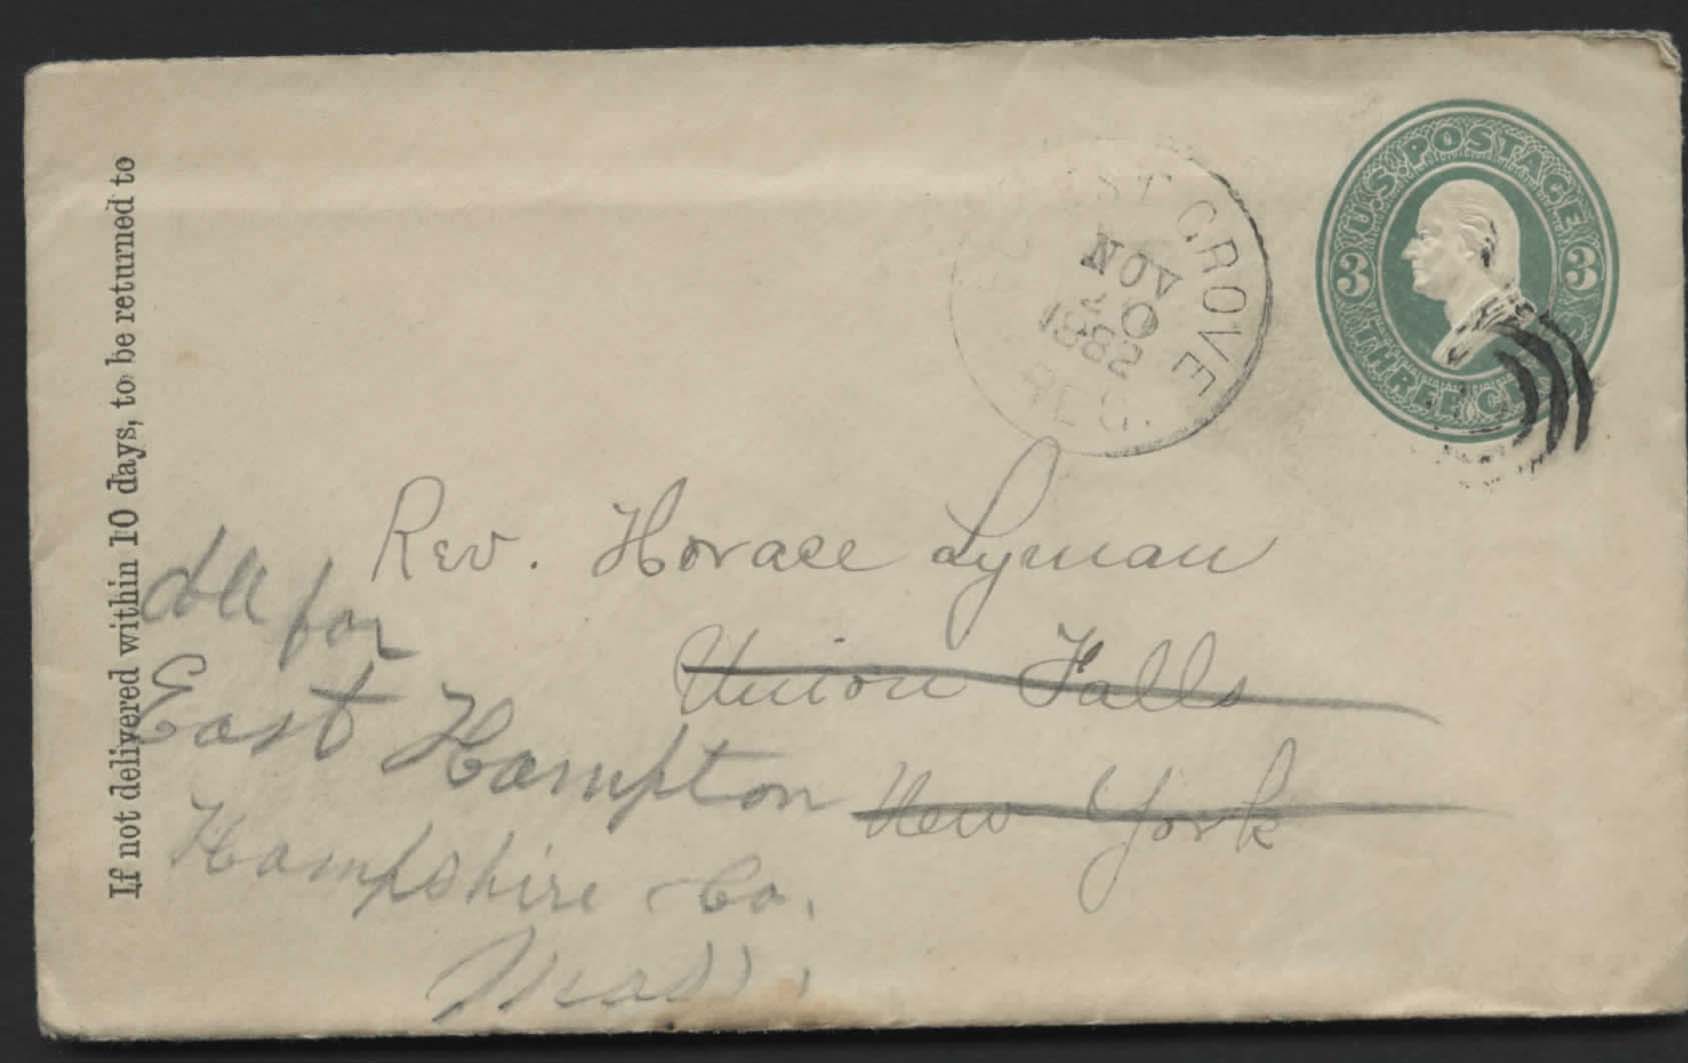 If not delivered within 10 days, to be returned to
FOREST GROVE
NOV
10
1882
REG.
U.S. POSTAGE
3 3
THREE CE
Rev. Horace Lyman
Union Falls
New York
for
East Hampton
Hampshire Co.
Mass.